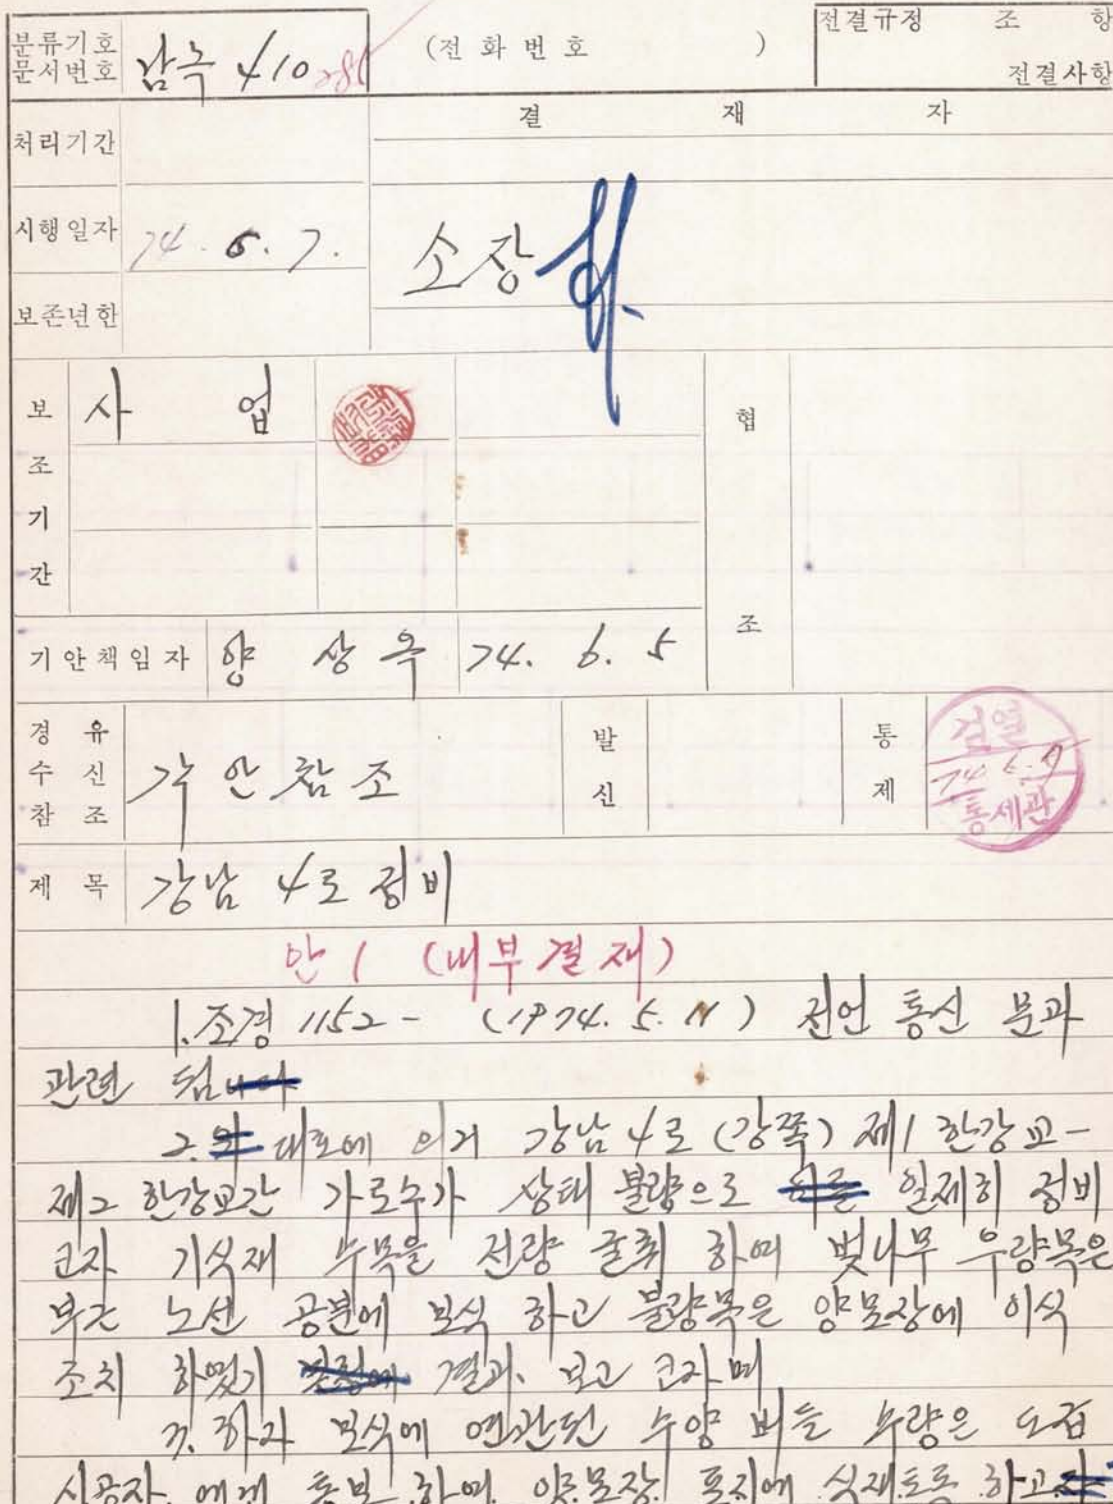 분류기호 문서번호 남녹 410
(전화번호 )
전결규정 조 항
전결사항
처리기간
결 재 자
시행일자 74. 6. 7.
소장
보존년한
보조기간 사 업
협조
기안책임자 양 상 옥 74. 6. 5
경유 수신 참조 각 안 참조
발신
통제
검열
74 6. 7
통제관
제 목 강남 4로 정비
안 1 (내부결재)
1. 조경 1152 - (1974. 5. 11) 전언 통신 문과
관련 됨
2. 대호에 의거 강남 4로 (강쪽) 제1 한강교-
제2 한강교간 가로수가 상태 불량으로 일제히 정비
코자 기식재 수목을 전량 굴취 하여 벚나무 우량목은
부근 노선 공분에 보식 하고 불량목은 양묘장에 이식
조치 하였기 결과 보고 코자 며
3. 하자 보식에 연관된 수양 버들 수량은 도급
시공자 에게 통보 하여 양묘장 포지에 식재토록 하고